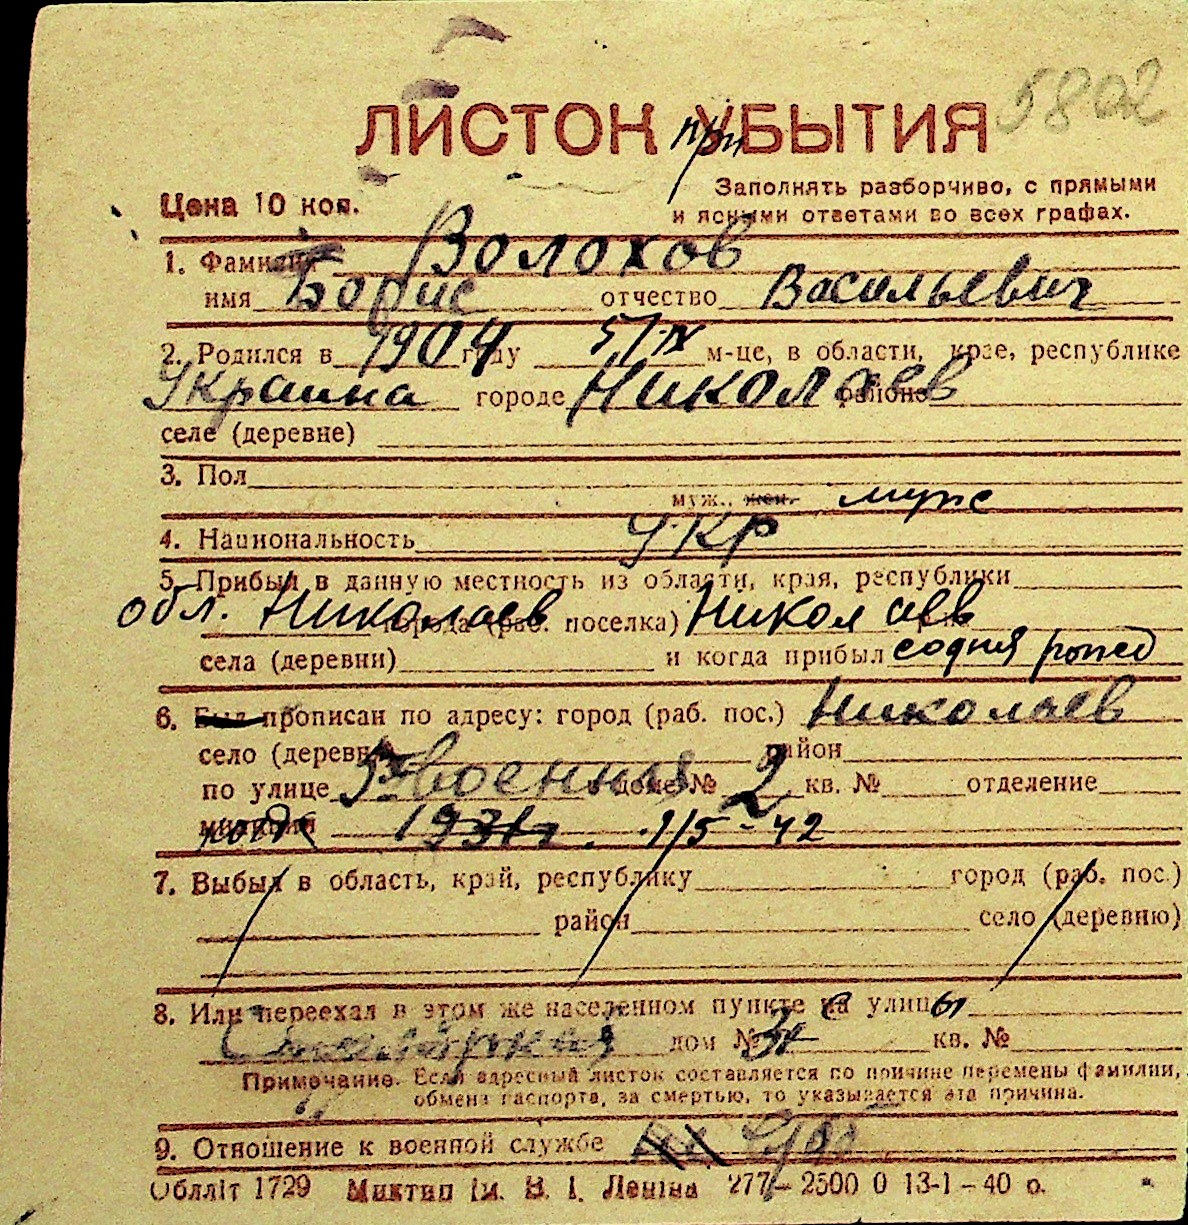 5802
ЛИСТОК при УБЫТИЯ
Цена 10 коп.
Заполнять разборчиво, с прямыми
и ясными ответами во всех графах.
1. Фамилия Волохов
имя Борис отчество Васильевич
2. Родился в 1904 году 5/IX м-це, в области, крае, республике
Украина городе Николаев районе
селе (деревне)
3. Пол
муж., жен. муж
4. Национальность укр
5. Прибыл в данную местность из области, края, республики
обл. Николаев города (раб. поселка) Николаев
села (деревни) и когда прибыл
6. Был прописан по адресу: город (раб. пос.) Николаев
село (деревня) район
по улице военная дом № 2 кв. № отделение
милиции 1931г. 1/5-42
7. Выбыл в область, край, республику город (раб. пос.)
район село (деревню)
8. Или переехал в этом же населенном пункте на с улицы
дом № 34 кв. №
Примечание. Если адресный листок составляется по причине перемены фамилии,
обмена паспорта, за смертью, то указывается эта причина.
9. Отношение к военной службе
Обллiт 1729 Миктип iм. В. I. Ленiна 277—2500 0 13-1-40 о.